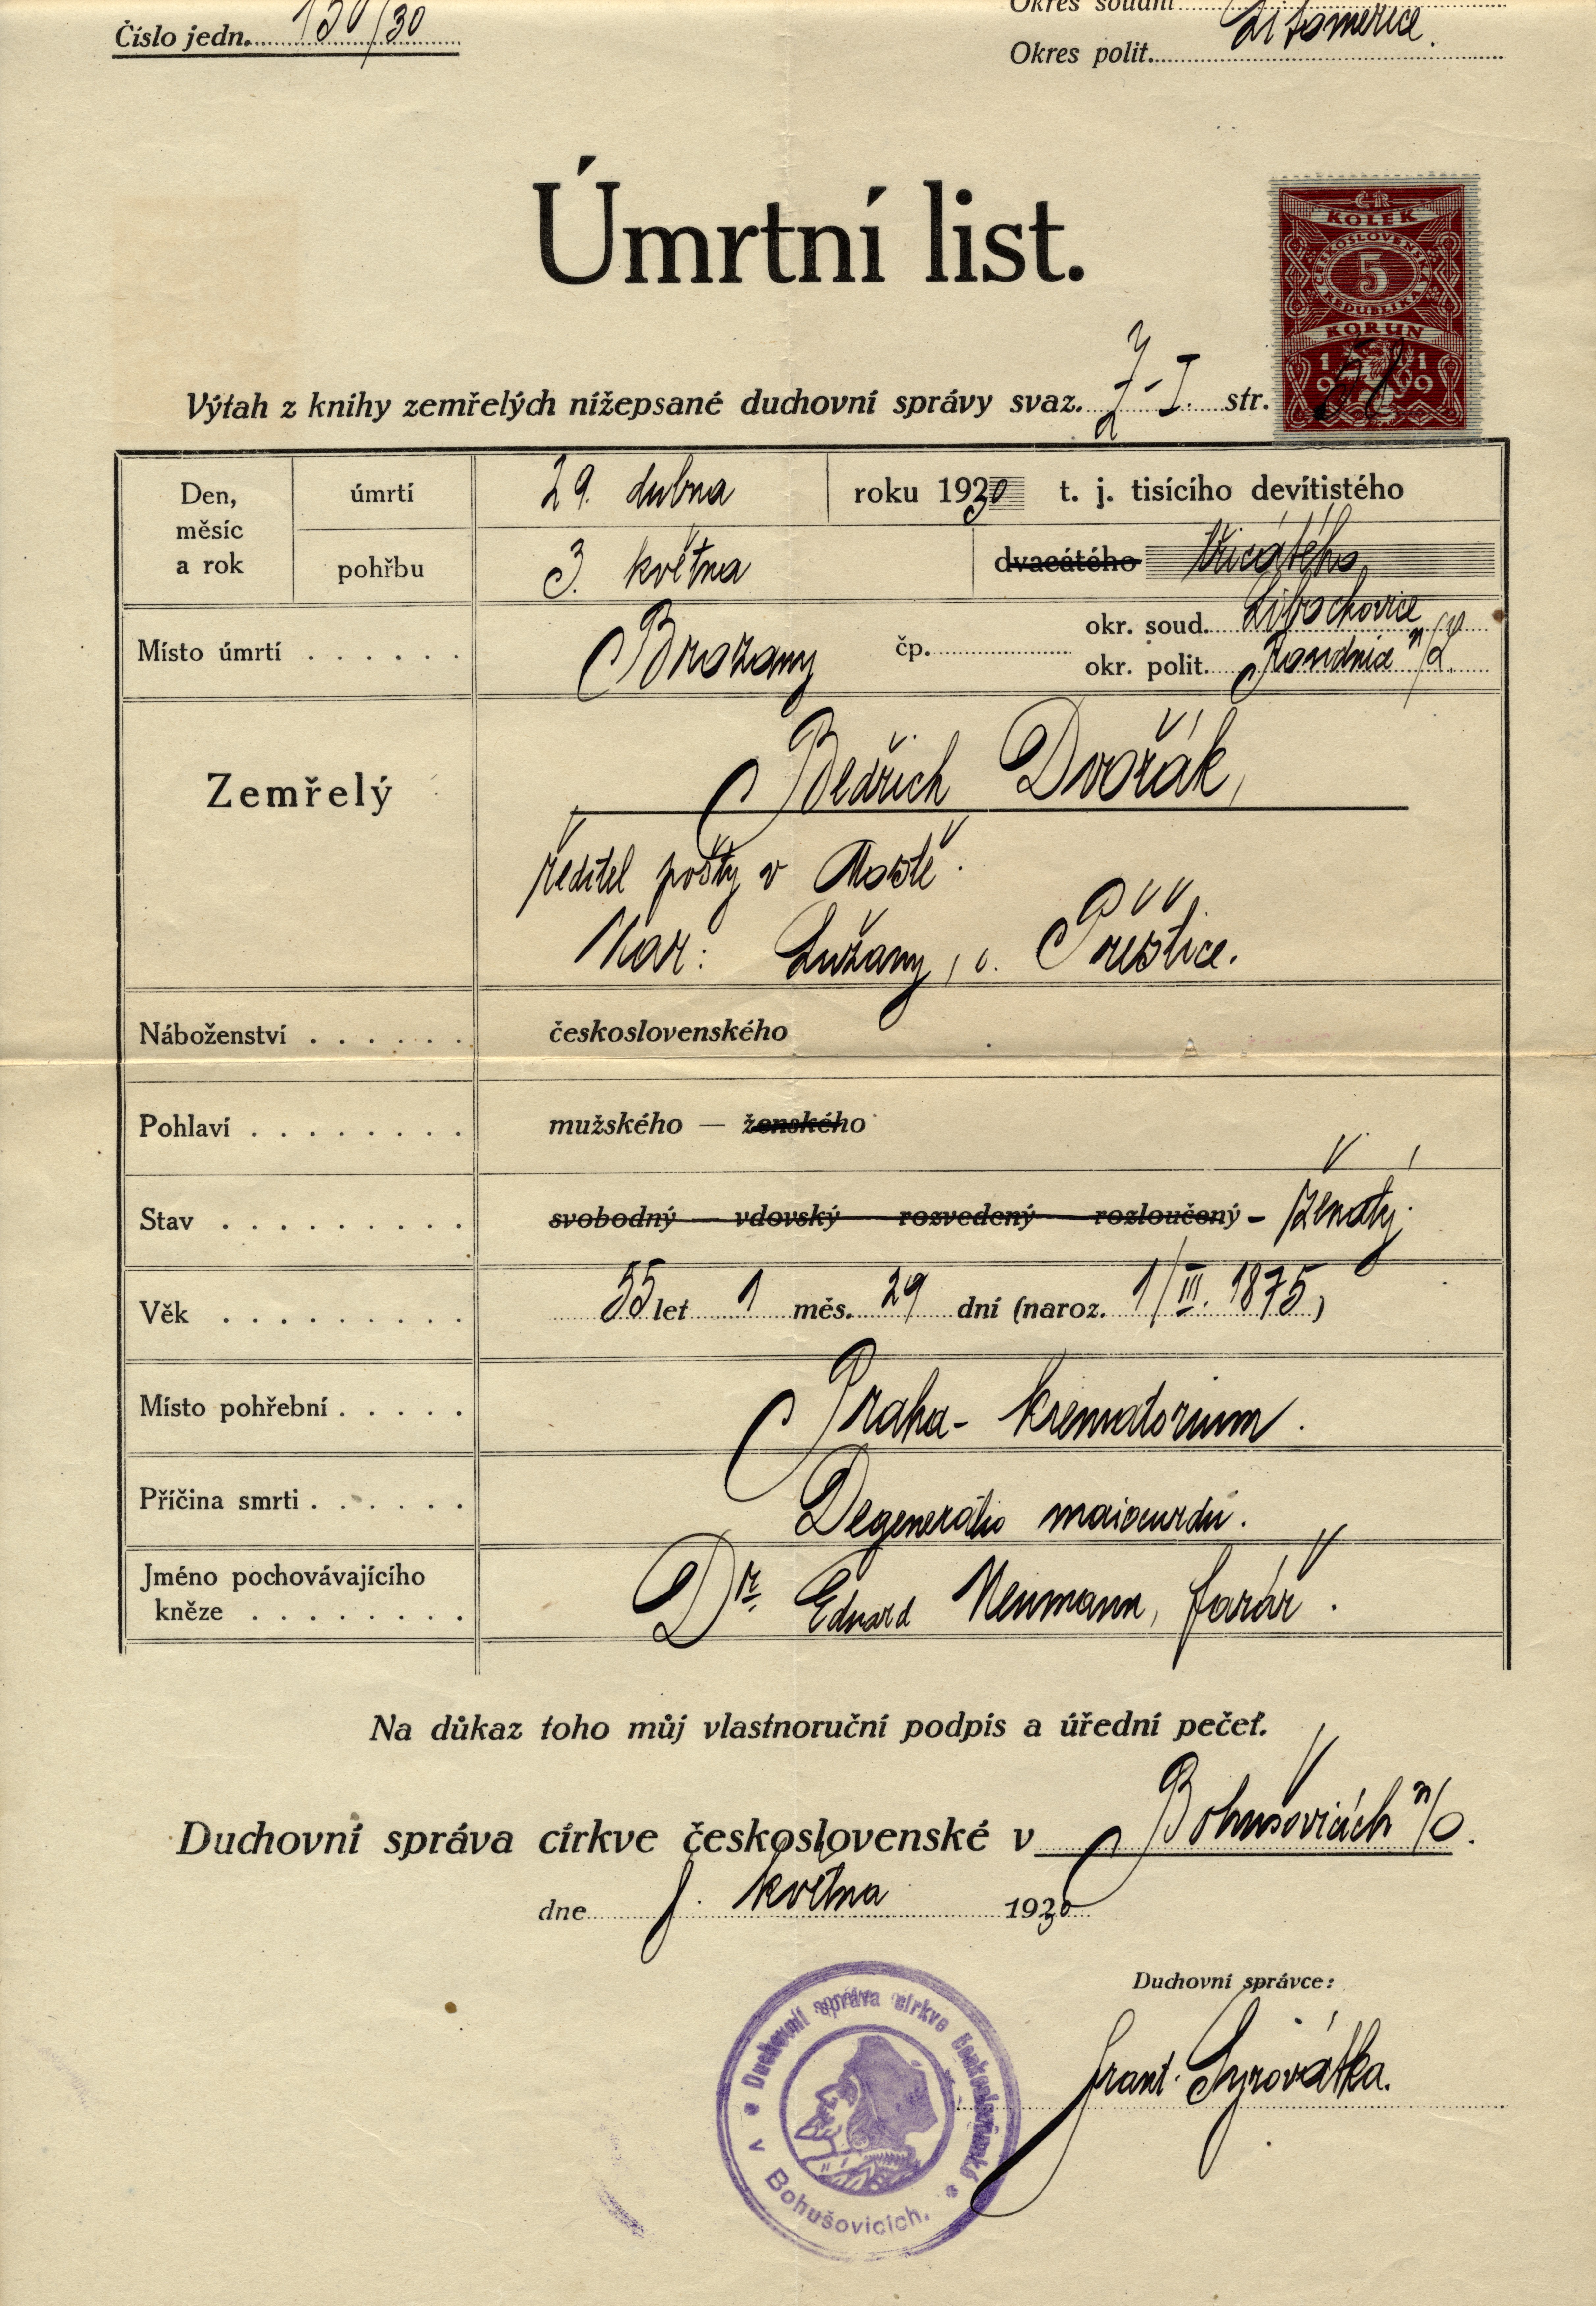 Číslo jedn. 130/30
Okres soudní
Okres polit. Litoměřice.
Úmrtní list.
KOLEK
ČESKOSLOVENSKÁ
5
REPUBLIKA
KORUN
1919
Výtah z knihy zemřelých nížepsané duchovní správy svaz. I. str. 58
Den, měsíc a rok
úmrtí 29. dubna roku 1930 t. j. tisícího devítistého
pohřbu 3. května dvacátého třicátého
Místo úmrtí . . . . . . Brozany čp. okr. soud. Libochovice n/O
okr. polit. Roudnice n/L.
Zemřelý Bedřich Dvořák,
ředitel pošty v Mostě.
Nar: Lužany, o. Přeštice.
Náboženství . . . . . . československého
Pohlaví . . . . . . . . mužského — ženského
Stav . . . . . . . . . svobodný — vdovský — rozvedený — rozloučený - ženatý.
Věk . . . . . . . . . 55 let 1 měs. 29 dní (naroz. 1/III. 1875)
Místo pohřební . . . . . Praha - krematorium.
Příčina smrti . . . . . . Degeneratio maiocurdii.
Jméno pochovávajícího
kněze . . . . . . . . Dr. Eduard Neumann, farář.
Na důkaz toho můj vlastnoruční podpis a úřední pečeť.
Duchovní správa církve československé v Bohušovicích n/O.
dne května 1930
Duchovní správce:
Frant. Syrovátka.
Duchovní správa církve československé
v Bohušovicích.